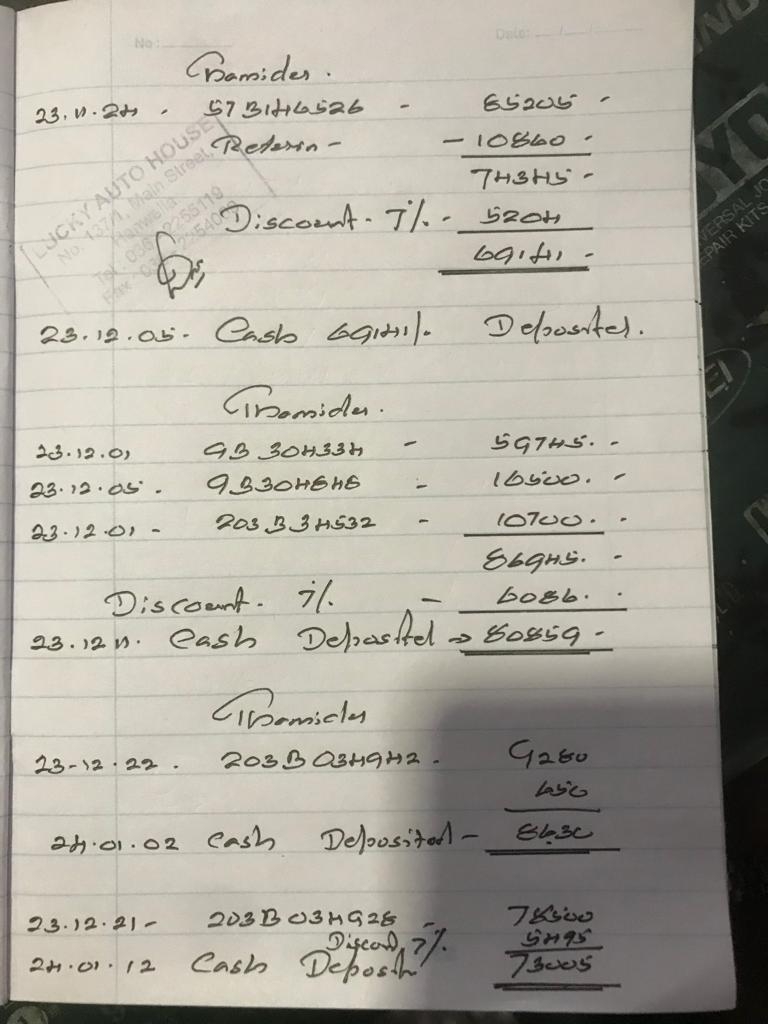 No: Date: / /
23.11.24 - 57B146526 - 85205 -
Return - - 10860 -
74345 -
LUCKY AUTO HOUSE
No. 137/1, Main Street,
Hanwella
Tel
Fax
Discount - 7% - 5204
69141 -
23.12.05 - Cash 69141/- Deposited.
23.12.01 9B304334 - 59745. -
23.12.05 - 9B304848 - 16500. -
23.12.01 - 203B34532 - 10700. -
86945. -
Discount - 7% - 6086. -
23.12 11. Cash Deposited → 80859 -
23-12.22 - 203B034942 - 9280
650
24.01.02 Cash Deposited - 8630
23.12.21 - 203B034928 - 78500
Discount 7% 5495
24.01.12 Cash Deposit 73005